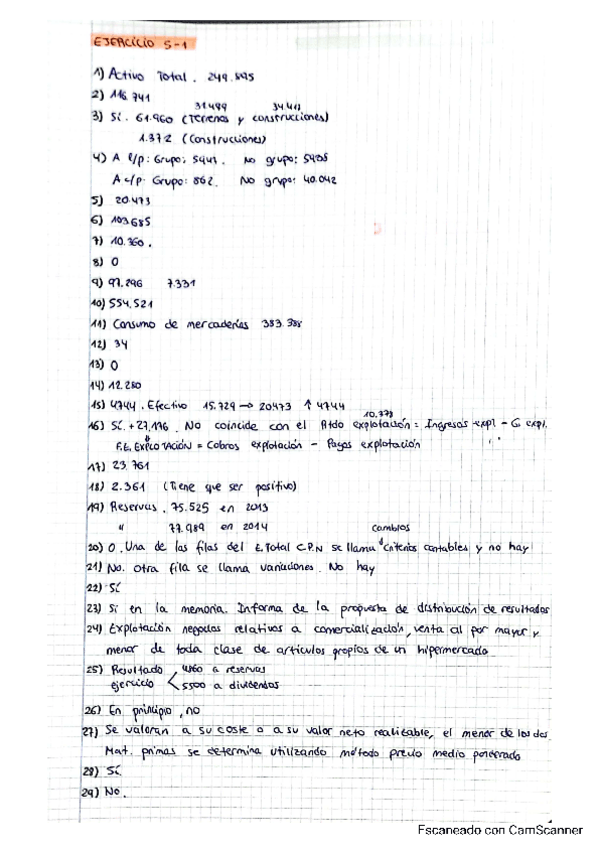 EJERCICIO 5-1
1) Activo Total. 249.895
2) 116.741
31499 34411
3) Sí. 61.960 (Terrenos y construcciones)
1.372 (Construcciones)
4) A l/p: Grupo: 5441. No grupo: 5905
A c/p: Grupo: 862. No grupo: 40.042
5) 20.473
6) 103685
7) 10.360.
8) 0
9) 97.296 7.331
10) 554.521
11) Consumo de mercaderías 383.388
12) 34
13) 0
14) 12.280
15) 4744. Efectivo 15.729 → 20473 ↑ 4744
10.773
16) Sí. + 27,176. No coincide con el Rtdo explotación = Ingresos expl - G expl.
F.E. EXPLOTACIÓN = Cobros explotación - Pagos explotación
17) 23.761
18) 2.361 (Tiene que ser positivo)
19) Reservas. 75.525 en 2013
" 77.989 en 2014
cambios
20) 0. Una de las filas del E.Total C.P.N se llama criterios contables y no hay
21) No. Otra fila se llama variaciones. No hay
22) Sí
23) Si en la memoria. Informa de la propuesta de distribución de resultados
24) Explotación negocios relativos a comercialización, venta al por mayor y
menor de toda clase de artículos propios de un hipermercado
25) Resultado 4860 a reservas
ejercicio 5500 a dividendos
26) En principio, no
27) Se valoran a su coste o a su valor neto realizable, el menor de los dos
Mat. primas se determina utilizando método precio medio ponderado
28) Sí.
29) No.
Escaneado con CamScanner